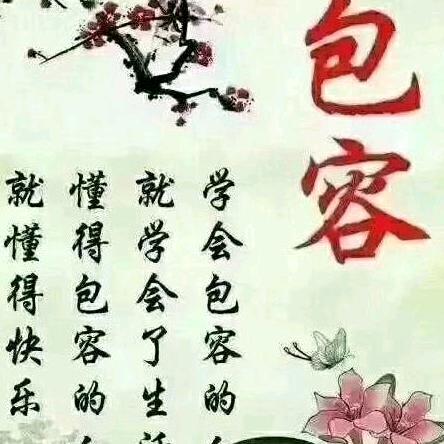 包容
学会包容的
就学会了生
懂得包容的
就懂得快乐